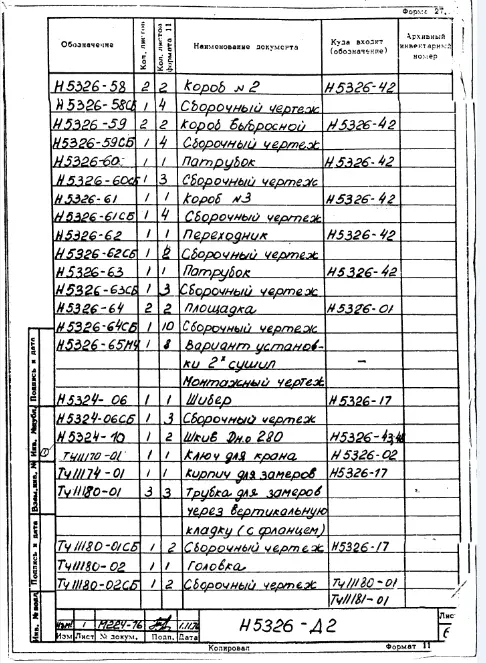 Форма 27.
Обозначение Кол. листов Кол. листов формата 11 Наименование документа Куда входит (обозначение) Архивный инвентарный номер
Н5326-58 2 2 Короб №2 Н5326-42
Н5326-58СБ 1 4 Сборочный чертеж
Н5326-59 2 2 Короб выбросной Н5326-42
Н5326-59СБ 1 4 Сборочный чертеж
Н5326-60 1 1 Патрубок Н5326-42
Н5326-60СБ 1 3 Сборочный чертеж
Н5326-61 1 1 Короб №3 Н5326-42
Н5326-61СБ 1 4 Сборочный чертеж
Н5326-62 1 1 Переходник Н5326-42
Н5326-62СБ 1 2 Сборочный чертеж
Н5326-63 1 1 Патрубок Н5326-42
Н5326-63СБ 1 3 Сборочный чертеж
Н5326-64 2 2 Площадка Н5326-01
Н5326-64СБ 1 10 Сборочный чертеж
Н5326-65МЧ 1 8 Вариант установ-
ки 2х сушил –
Монтажный чертеж
Н5324-06 1 1 Шибер Н5326-17
Н5324-06СБ 1 3 Сборочный чертеж
Н5324-10 1 2 Шкив Dн.о 280 Н5326-43,
Ту11170-01 1 1 Ключ для крана Н5326-02
Ту11174-01 1 1 Кирпич для замеров Н5326-17
Ту11180-01 3 3 Трубка для замеров
через вертикальную
кладку (с фланцем)
Ту11180-01СБ 1 2 Сборочный чертеж Н5326-17
Ту11180-02 1 1 Головка
Ту11180-02СБ 1 2 Сборочный чертеж Ту11180-01
Ту11181-01
Инв. № подл. Подпись и дата Взам. инв. № Инв. № дубл. Подпись и дата
1 М224-76 1.11.76
Изм Лист № докум. Подп. Дата
Н5326-Д2
Лис
6
Копировал Формат 11